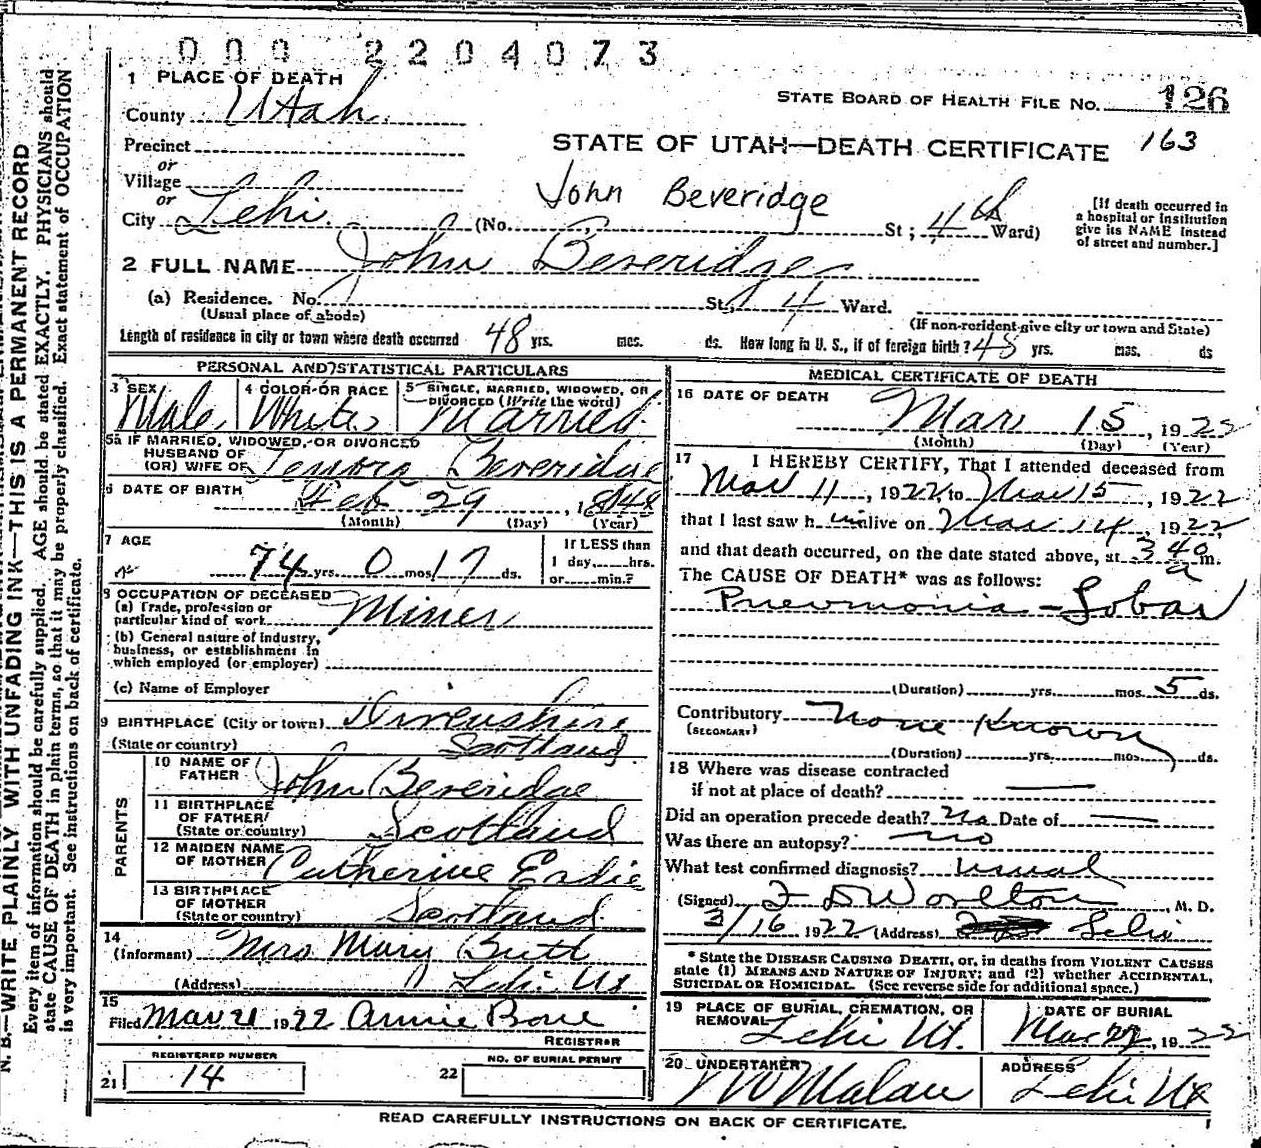 000 2204073
1 PLACE OF DEATH
STATE BOARD OF HEALTH FILE NO. 126
County Utah
Precinct
STATE OF UTAH—DEATH CERTIFICATE 163
or
Village
John Beveridge
or
City Lehi (No. St; 4th Ward)
[If death occurred in
a hospital or institution
give its NAME instead
of street and number.]
2 FULL NAME John Beveridge
(a) Residence. No. St. 4 Ward.
(Usual place of abode)
(If non-resident give city or town and State)
Length of residence in city or town where death occurred 48 yrs. mos. ds. How long in U. S., if of foreign birth? 48 yrs. mos. ds
PERSONAL AND STATISTICAL PARTICULARS
3 SEX
Male
4 COLOR OR RACE
White
5 SINGLE, MARRIED, WIDOWED, OR
DIVORCED (Write the word)
Married
5a IF MARRIED, WIDOWED, OR DIVORCED
HUSBAND OF
(OR) WIFE OF Beveridge
6 DATE OF BIRTH Feb 29, 1848
(Month) (Day) (Year)
7 AGE
74 yrs. 0 mos 17 ds.
If LESS than
1 day, hrs.
or min.?
8 OCCUPATION OF DECEASED
(a) Trade, profession or
particular kind of work Miner
(b) General nature of industry,
business, or establishment in
which employed (or employer)
(c) Name of Employer
9 BIRTHPLACE (City or town)
(State or country) Scotland
PARENTS
10 NAME OF
FATHER John Beveridge
11 BIRTHPLACE
OF FATHER
(State or country) Scotland
12 MAIDEN NAME
OF MOTHER Catherine
13 BIRTHPLACE
OF MOTHER
(State or country) Scotland
14
(Informant) Mrs Mary Butt
(Address) Lehi Ut
15
Filed Mar 21 1922 Annie Bone
REGISTRAR
REGISTERED NUMBER
21 14
NO. OF BURIAL PERMIT
22
MEDICAL CERTIFICATE OF DEATH
16 DATE OF DEATH
Mar 15, 1922
(Month) (Day) (Year)
17 I HEREBY CERTIFY, That I attended deceased from
Mar 11, 1922 to Mar 15, 1922
that I last saw h im alive on Mar 14, 1922
and that death occurred, on the date stated above, at 3 40 a m.
The CAUSE OF DEATH* was as follows:
Pneumonia - Lobar
(Duration) yrs. mos 5 ds.
Contributory None Known
(SECONDARY)
(Duration) yrs. mos. ds.
18 Where was disease contracted
if not at place of death? —
Did an operation precede death? No Date of —
Was there an autopsy? no
What test confirmed diagnosis? usual
(Signed) F D Worlton, M. D.
3/16 1922 (Address) Lehi
* State the DISEASE CAUSING DEATH, or, in deaths from VIOLENT CAUSES
state (1) MEANS AND NATURE OF INJURY; and (2) whether ACCIDENTAL,
SUICIDAL OR HOMICIDAL. (See reverse side for additional space.)
19 PLACE OF BURIAL, CREMATION, OR
REMOVAL Lehi Ut.
DATE OF BURIAL
Mar, 1922
20 UNDERTAKER
Malan
ADDRESS
Lehi Ut
READ CAREFULLY INSTRUCTIONS ON BACK OF CERTIFICATE.
N. B.—WRITE PLAINLY WITH UNFADING INK—THIS IS A PERMANENT RECORD
Every item of information should be carefully supplied. AGE should be stated EXACTLY. PHYSICIANS should
state CAUSE OF DEATH in plain terms, so that it may be properly classified. Exact statement of OCCUPATION
is very important. See instructions on back of certificate.